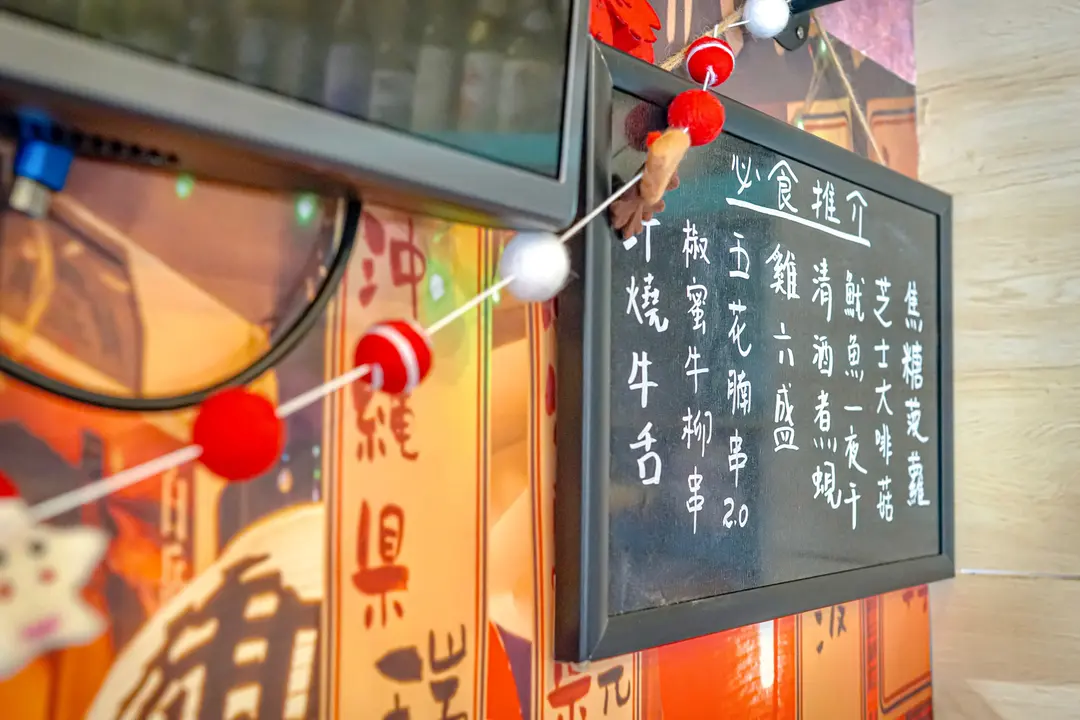 必食推介
焦糖菠蘿
芝士大啡菇
魷魚一夜干
清酒煮蜆
雞六盛
五花腩串2.0
椒蜜牛柳串
燒牛舌
沖縄県瑞